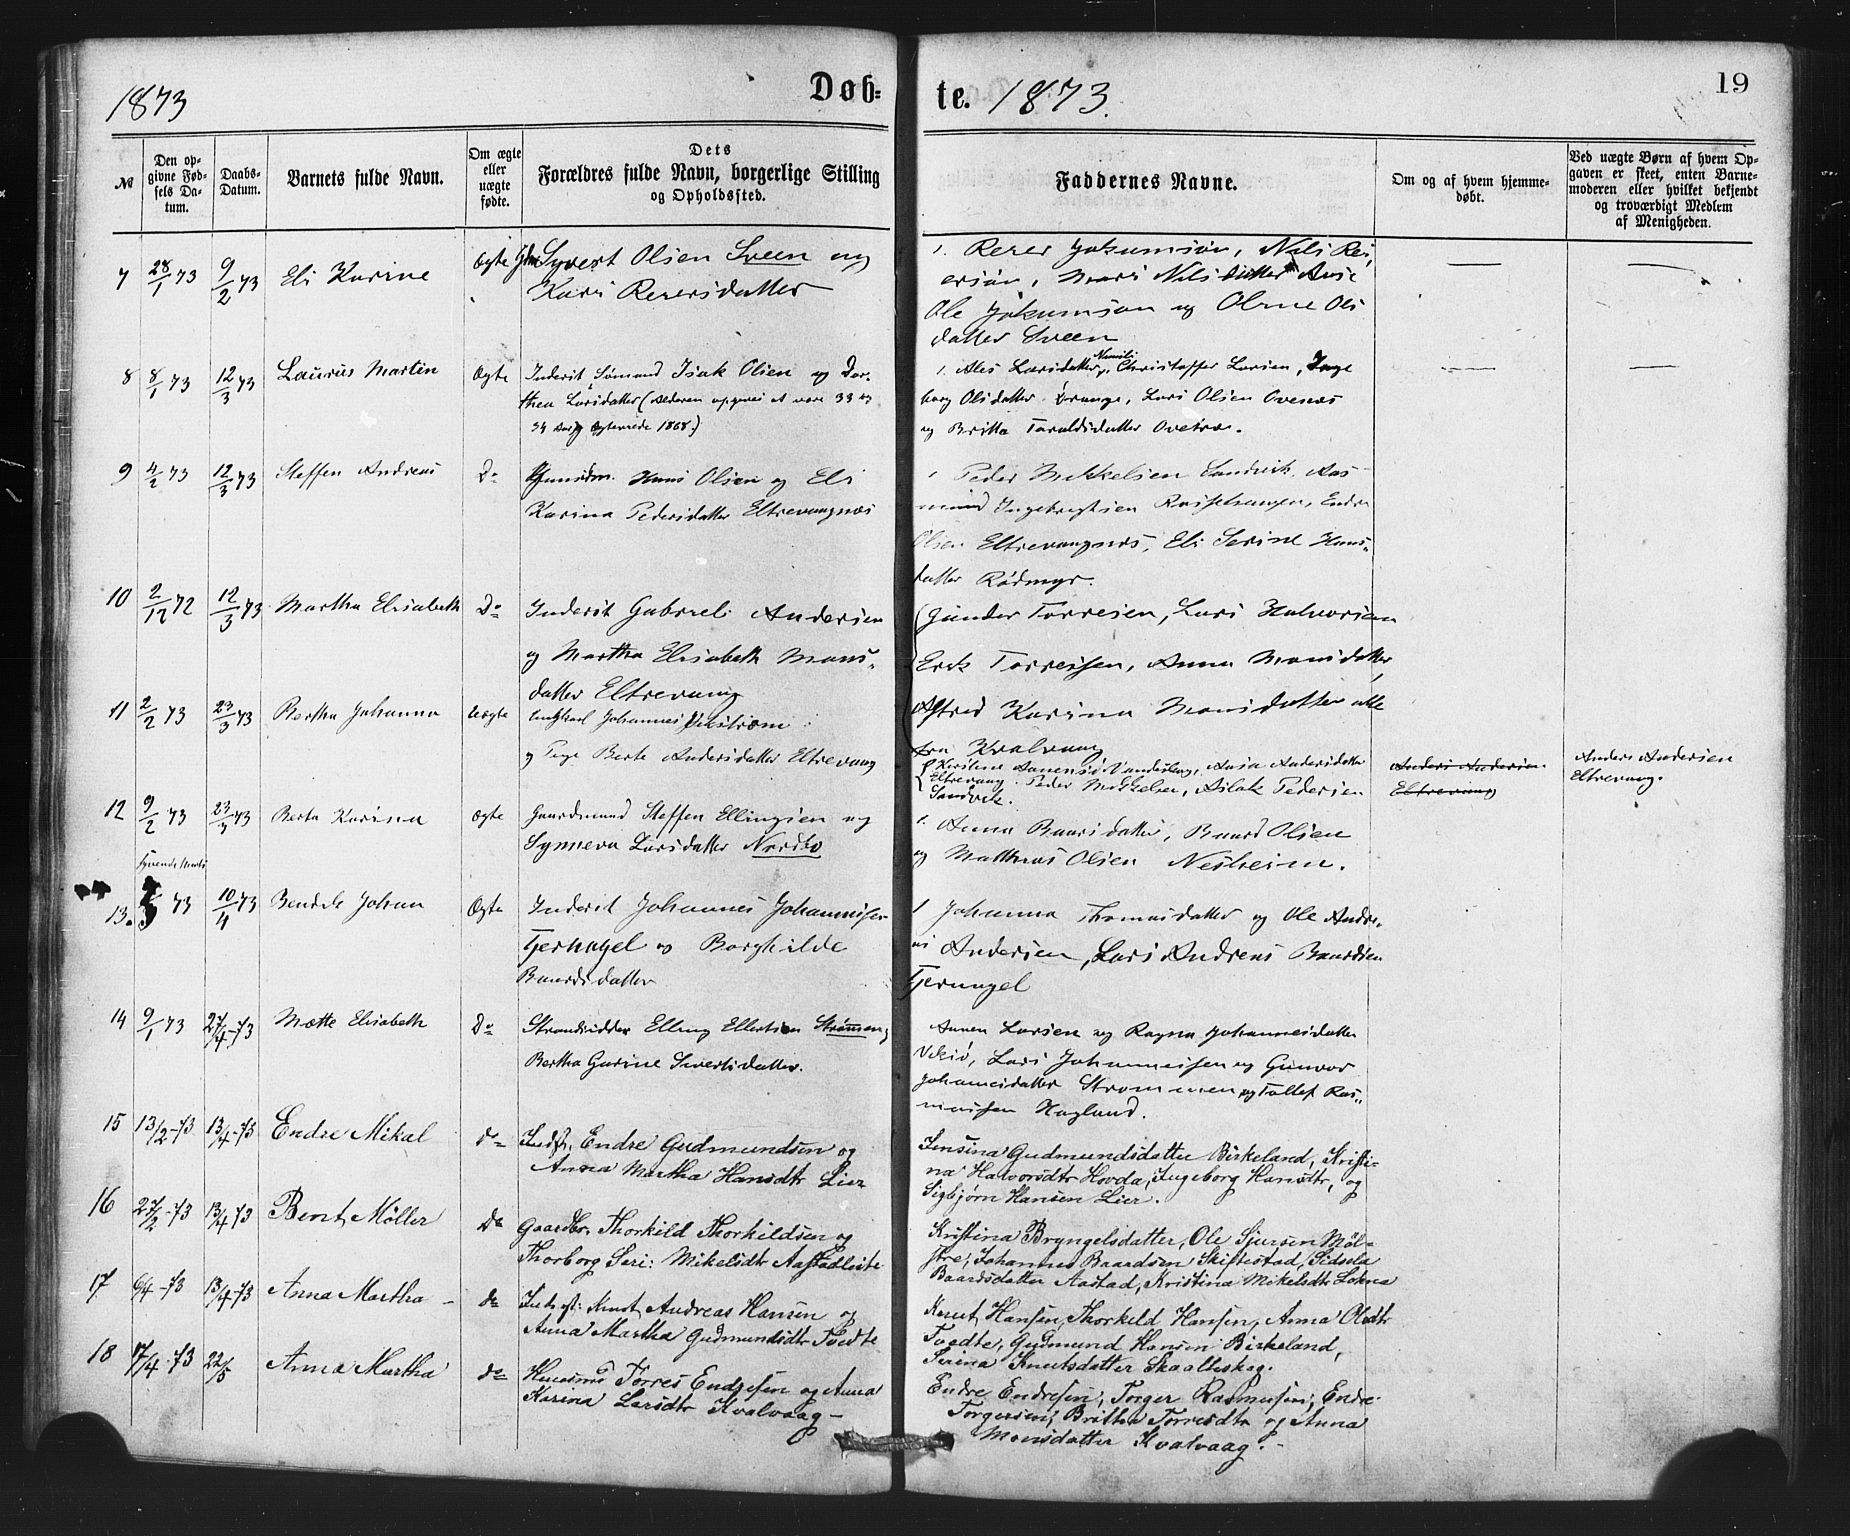 1873
Døb-
te. 1873.
19
№
Den op-
givne Fød-
sels Da-
tum.
Daabs-
Datum.
Barnets fulde Navn.
Om ægte
eller
uægte
fødte.
Dets
Forældres fulde Navn, borgerlige Stilling
og Opholdssted.
Faddernes Navne.
Om og af hvem hjemme-
døbt.
Ved uægte Børn af hvem Op-
gaven er skeet, enten Barne-
moderen eller hvilket bekjendt
og troværdigt Medlem
af Menigheden.
7 28/1 73 9/2 73 Eli Karine Ægte Syvert Olsen Sveen og
Kari Reiersdatter
Reier Jokumsøn, Nils Rei-
ersøn, Mari Nilsdatter
Ole Jokumsøn og Oline Ols
datter Sveen
8 8/1 73 12/3 73 Laurus Martin Ægte Inderst Sømand Isak Olsen og Dor-
thea Larsdatter (Alderen opgives at være 33 og
34 Aar, Ægteviede 1868.)
Ales Larsdatter, Christoffer Larsen, Inge
borg Olsdatter, Lars Olsen
og Britta Taraldsdatter
9 4/2 73 12/3 73 Steffen Andreas Do Hans Olsen og Eli
Karina Pedersdatter Eltrevaagnæs
Peder Mikkelsen Sandvik, Aas-
mund Ingebregtsen, Endre
Olsen Eltrevaagnæs, Eli Serine Hans-
datter Rødmyr.
10 2/12 72 12/3 73 Martha Elisabeth Do Inderst Gabriel Andersen
og Martha Elisabeth Mons-
datter Eltrevaag
Gunder Torresen, Lars Halvorsen
Erik Torresen, Anna Monsdatter,
Astrid Karina Monsdatter alle
fra Kvalvaag
11 2/2 73 23/3 73 Bertha Johanna Uægte Ungkarl Johannes
og Pige Berte Andersdatter Eltrevaag
Kirstine, Anna Andersdatter
Eltrevaag, Peder Mikkelsen, Aslak Pedersen
Sandvik.
Anders Andersen
Eltrevaag
Anders Andersen
Eltrevaag.
12 9/2 73 23/3 73 Berta Karina Ægte Gaardmand Steffen Ellingsen og
Synneva Larsdatter Nordbø
Anna Baardsdatter, Baard Olsen
og Matthias Olsen Nesheim.
syvende Marts
13. 73 10/4 73 Bendik Johan Ægte Inderst Johannes Johannesen
Tjernagel og Borghilde
Baardsdatter
Johanna Thomasdatter og Ole Andre-
as Andersen, Lars Andreas Baardsen
Tjernagel
14 9/1 73 27/4-73 Mætte Elisabeth Do Strandsidder Elling Ellertsen Strømmen,
Bertha Gurine Sivertsdatter.
Annen Larsen og Ragna Johannesdatter
Vikse, Lars Johannessen og Gunvor
Johannesdatter Strømmen og Tollef Ras-
mussen Hagland.
15 13/2-73 13/4-73 Endre Mikal do Indst. Endre Gudmundsen og
Anna Martha Hansdtr Lier
Jensina Gudmundsdatter Birkeland, Kristi-
na Halvorsdtr Hovda, Ingeborg Hansdtr, og
Sigbjørn Hansen Lier.
16 27/2-73 13/4-73 Bent Møller Do Gaardbr. Thorkild Thorkildsen og
Thorborg Seri: Mikelsdtr Aastadleite
Kristina Bryngelsdatter, Ole Sjursen Møl-
stre, Johannes Baardsen Skiftestad, Sidsela
Baardsdatter Aastad, Kristina Mikelsdtr Lokna
17 6/4-73 13/4-73 Anna Martha do Indst: Knut Andreas Hansen og
Anna Martha Gudmundsdtr Tvedte
Knut Hansen, Thorkild Hansen, Anna Olsdtr
Tvedte, Gudmund Hansen Birkeland,
Serina Knutsdatter Skaalleskog.
18 17/4-73 22/5 Anna Martha do Huusmd Torres Endresen og Anna
Karina Larsdtr Kvalvaag
Endre Endresen, Torger Rasmussen, Endre
Torgersen, Britha Torresdtr og Anna
Monsdatter Kvalvaag.